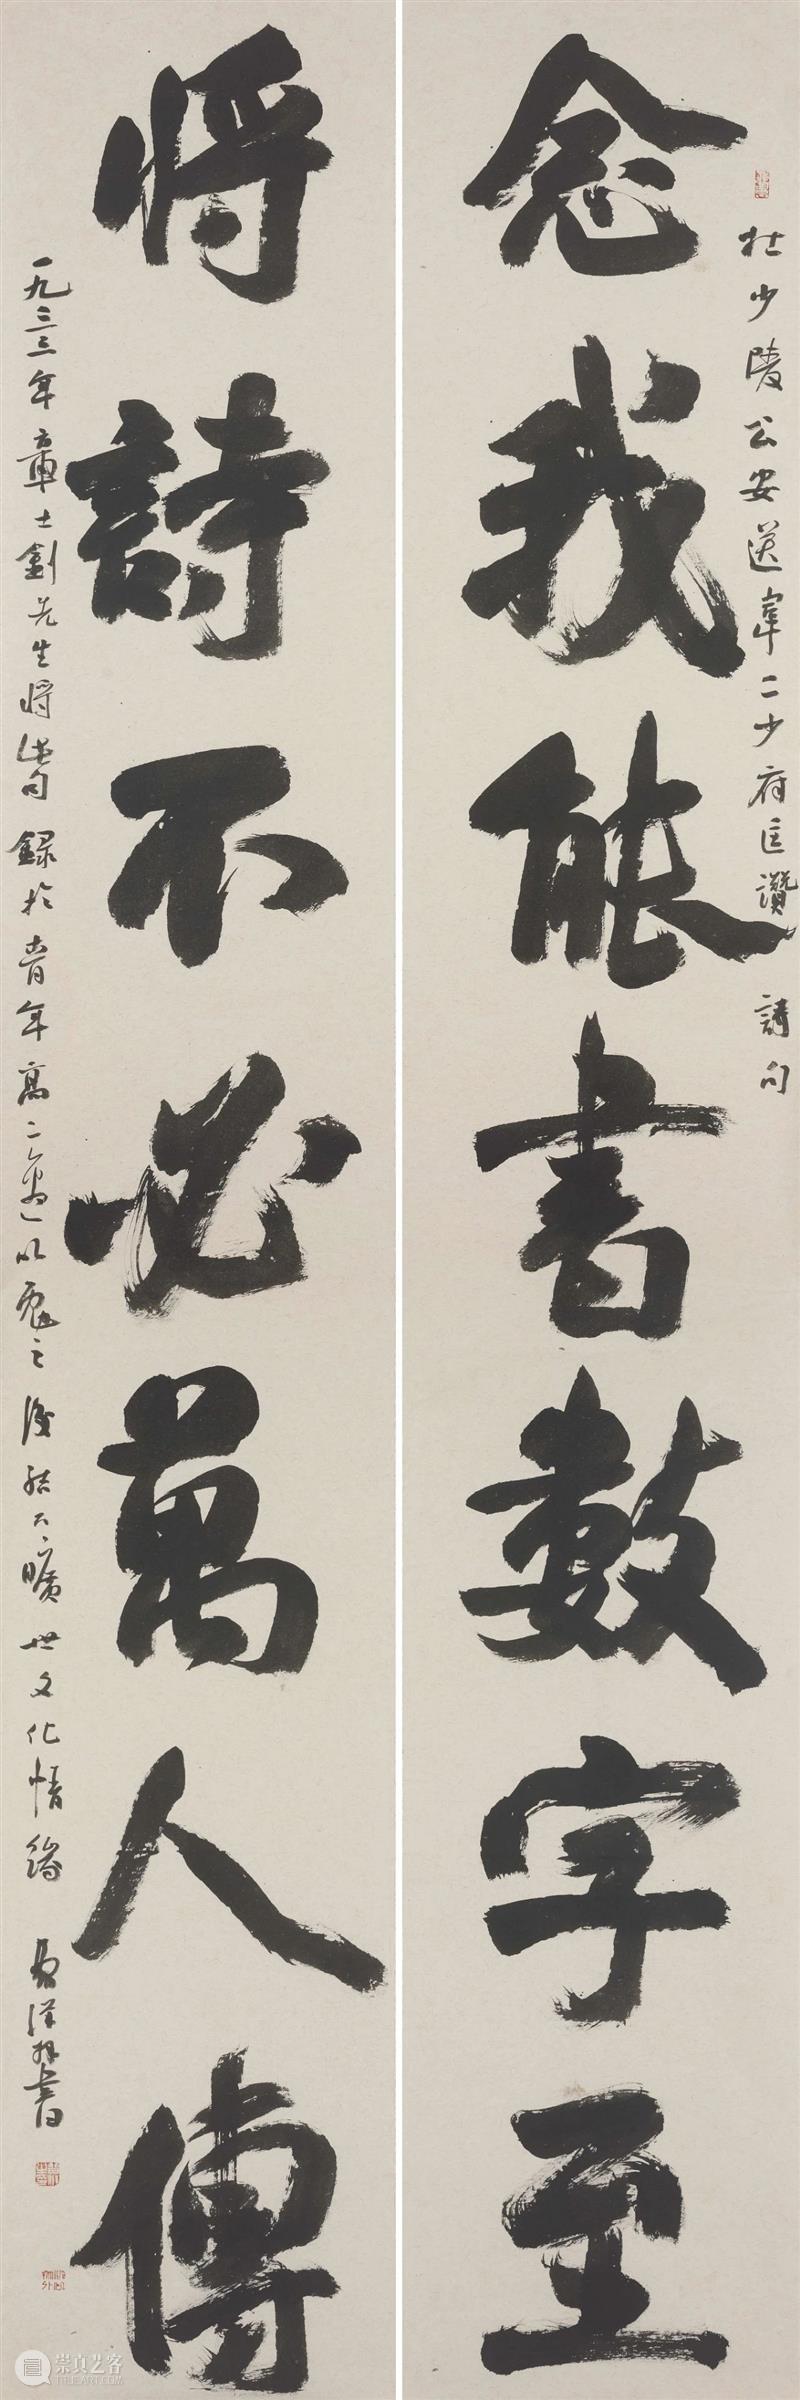 念我能書數字至
將詩不必萬人傳
杜少陵公安送韋二少府匡贊詩句
一九三三年章士釗先生將此句錄於青年高二適以

後結下曠世文化情緣
拜書
崇真艺客
WWW.TRUEART.COM